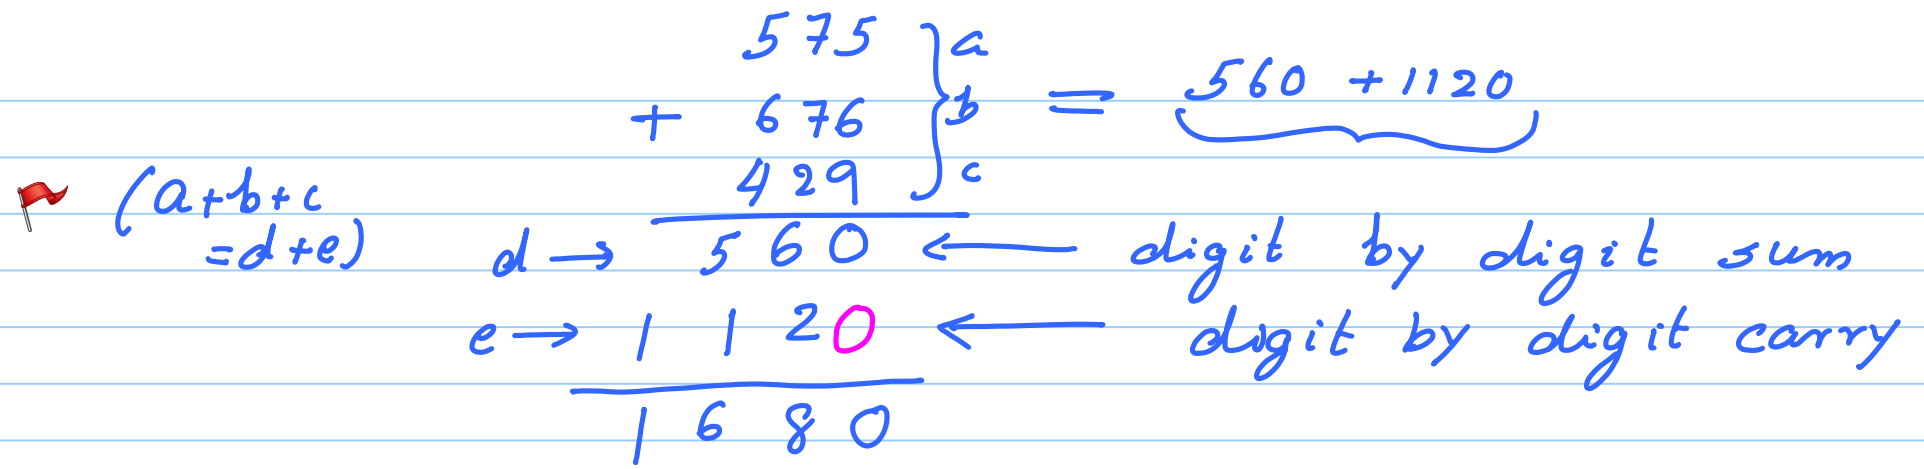 575 } a
+ 676 } b = 560 + 1120
429 } c
(a+b+c
=d+e)
d → 560 ← digit by digit sum
e → 1120 ← digit by digit carry
1680